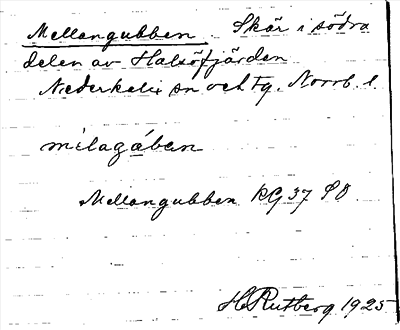 Mellangubben. Skär i södra
delen av Halsöfjärden
Nederkalix sn och tg. Norrb. l.
mìlagában
Mellangubben RG 37
H Rutberg 1925